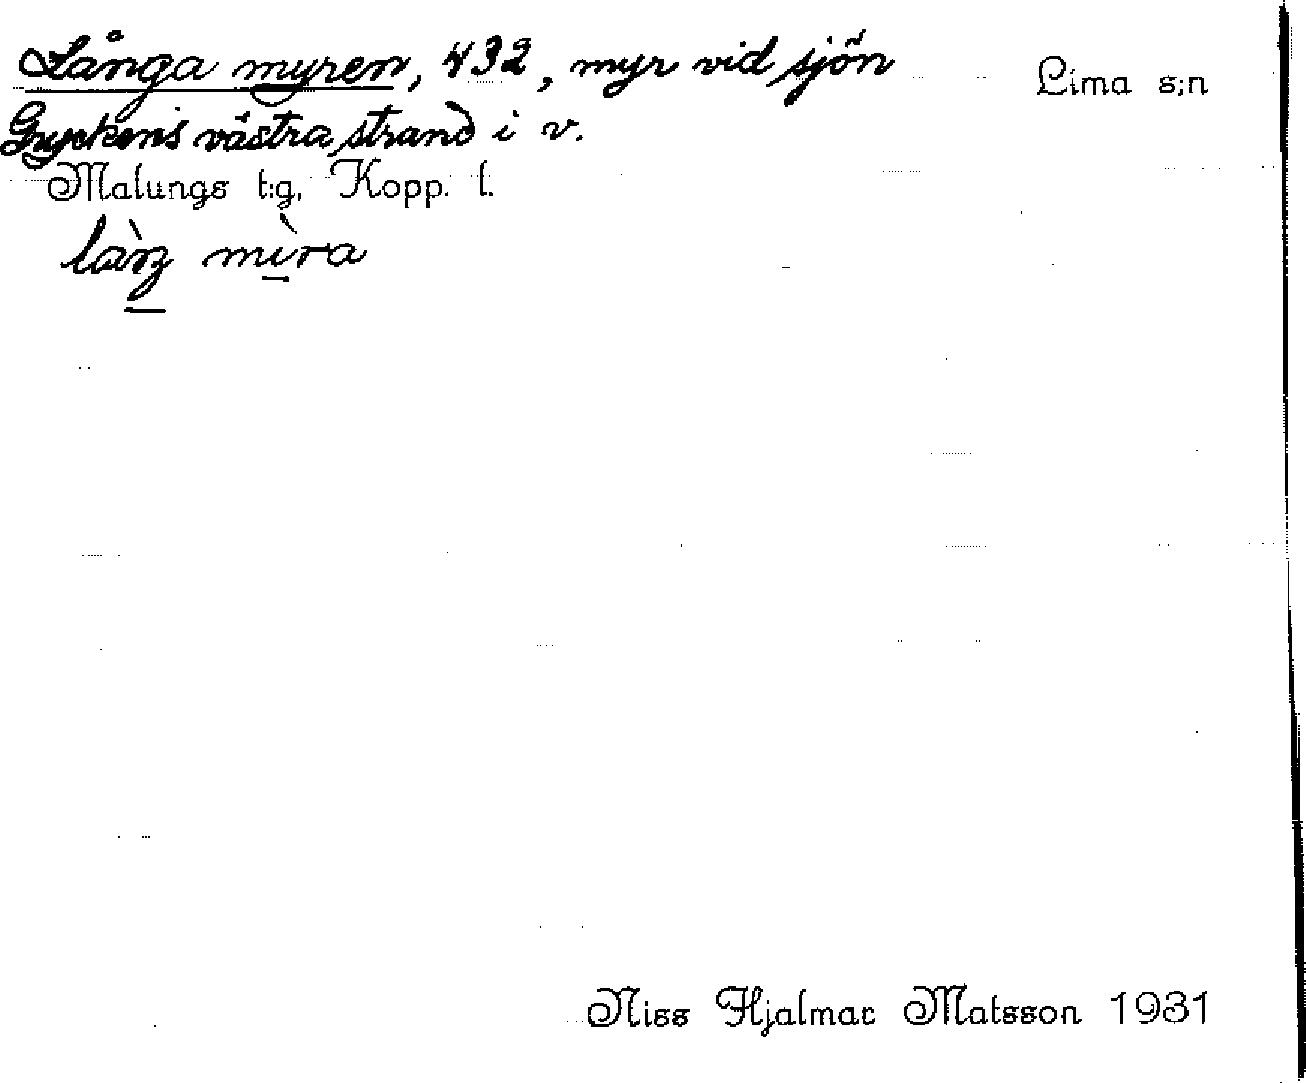 Långa myren, 432, myr vid sjön
Lima s:n
Gryckens västra strand i v.
Malungs t:g, Kopp. l.
làŋ mìra
Niss Hjalmar Matsson 1931